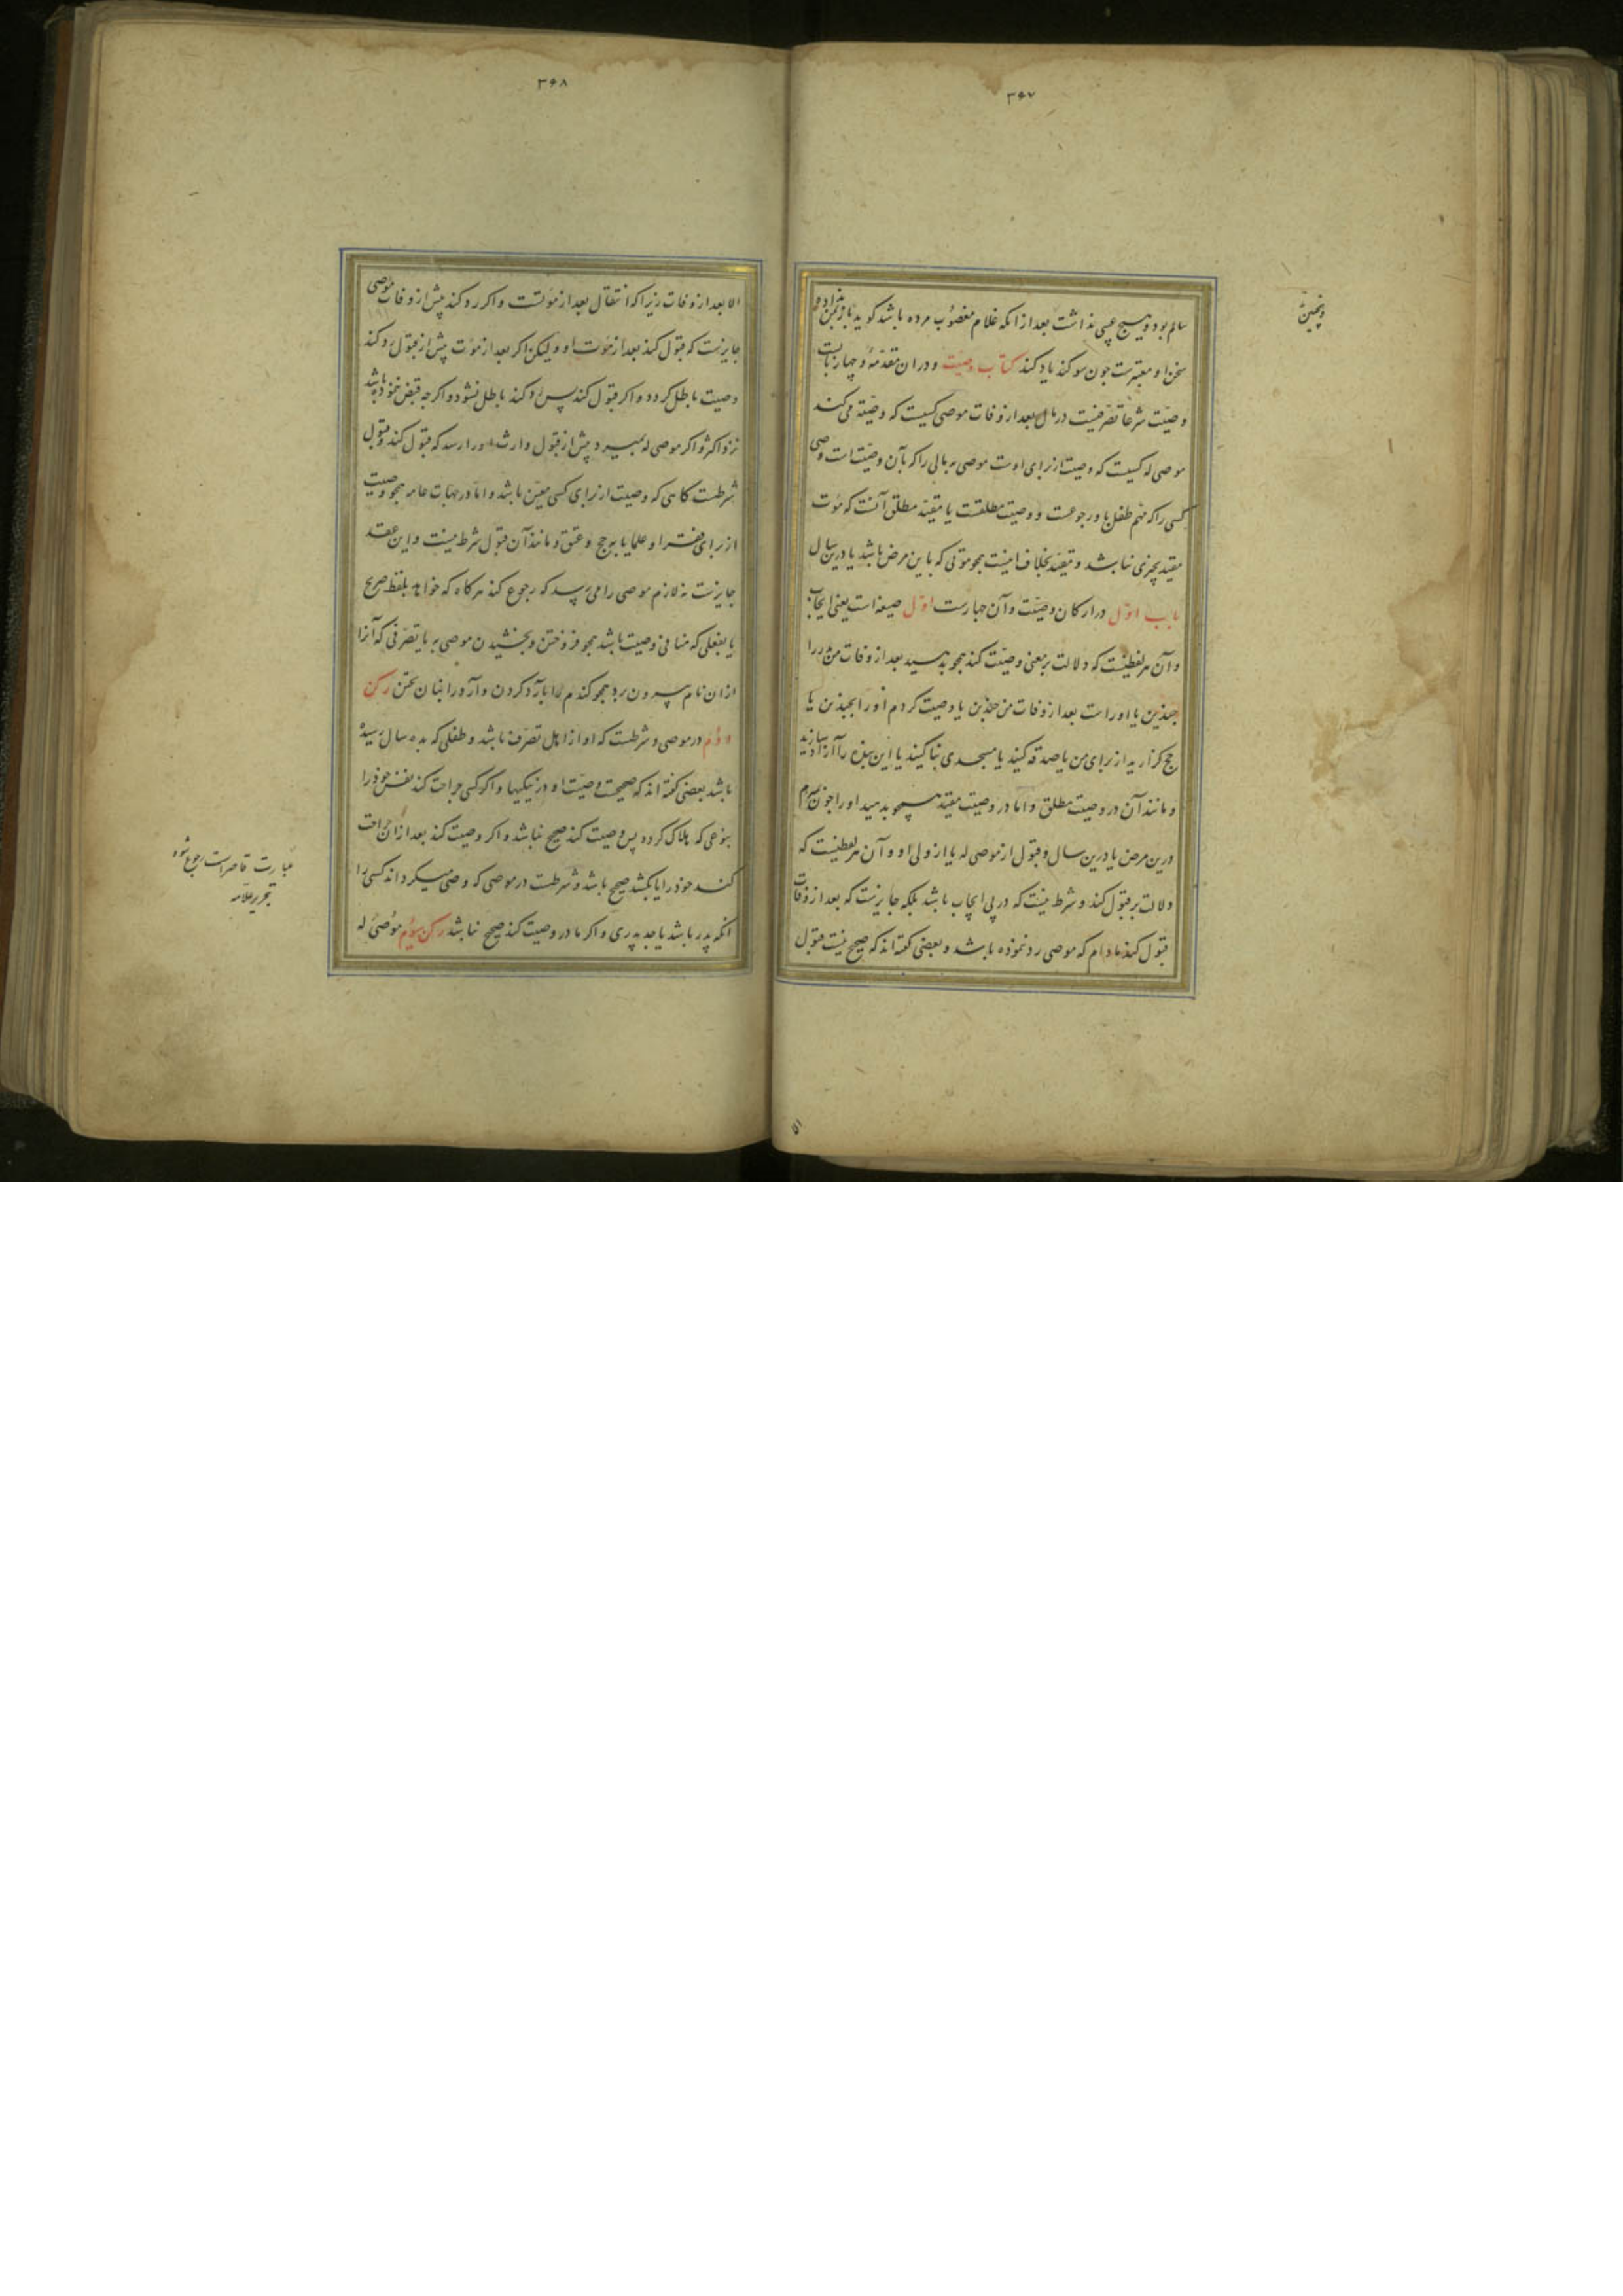 ۳۴۷
سالم بود و هیچ عیبی نداشت بعد از انکه غلام مغصوب مرده باشد کوید باز بمن نداده
سخن او معتبرست چون سوکند یاد کند کتاب وصیت و در ان مقدمه و چهار بابست
وصیت شرعا تصرفیست در مال بعد از وفات موصی کسیست که وصیة می کند
موصی له کسیست که وصیت از برای اوست موصی به مالی را که بآن وصیت است وصی
کسی را که مهم طفل باو رجوعست و وصیت مطلقست یا مقید مطلق آنست که موت
مقید بچیزی نباشد و مقید بخلاف اینست همچو موتی که باین مرض باشد یا درین سال
باب اول در ارکان وصیت و آن چهارست اول صیغه است یعنی ایجاب
و آن هر لفظیست که دلالت بر معنی وصیت کند همچو بدهید بعد از وفات من مر را
چندین یا او راست بعد از وفات من چندین یا وصیت کردم او را بچندین یا
حج کزارید از برای من یا صدقه کنید یا مسجدی بنا کنید یا این بنده را آزاد سازید
و مانند آن در وصیت مطلق و اما در وصیت مقید همچو بدهید او را چون بمیرم
درین مرض یا درین سال و قبول از موصی له یا از ولی او و آن هر لفظیست که
دلالت بر قبول کند و شرط نیست که در پی ایجاب باشد بلکه جایزست که بعد از وفات
قبول کند مادام که موصی رد ننموده باشد و بعضی کفته اند که صحیح نیست قبول
الا
۳۴۸
الا بعد از وفات زیرا که انتقال بعد از موتست و اکر رد کند پیش از وفات موصی
جایزست که قبول کند بعد از موت او ولیکن اکر بعد از موت پیش از قبول رد کند
وصیت باطل کردد و اکر قبول کند پس رد کند باطل نشود و اکر چه قبض ننموده باشد
نزد اکثر و اکر موصی له بمیرد پیش از قبول وارث او را رسد که قبول کند و قبول
شرطست کاهی که وصیت از برای کسی معین باشد و اما در جهات عامه همچو وصیت
از برای فقرا و علما یا بر حج و عتق و مانند آن قبول شرط نیست و این عقد
جایزست نه لازم موصی را می رسد که رجوع کند هر کاه که خواهد بلفظ صریح
یا بفعلی که منافی وصیت باشد همچو فروختن و بخشیدن موصی به یا تصرفی که آنرا
از ان نام بیرون برد همچو کندم را آرد کردن و آرد را نان پختن رکن
دوم در موصی و شرطست که او از اهل تصرف باشد و طفلی که بده سال رسیده
باشد بعضی کفته اند که صحیحست وصیت او در نیکیها و اکر کسی جراحت کند نفس خود را
بنوعی که هلاک کردد پس وصیت کند صحیح نباشد و اکر وصیت کند بعد از ان جراحت
کند خود را یا بکشد صحیح باشد و شرطست در موصی که وصی میکرداند کسی را
انکه پدر باشد یا جد پدری و اکر مادر وصیت کند صحیح نباشد رکن سوم موصی له
عبارت قاصر است رجوع شود
بتحریر علامه